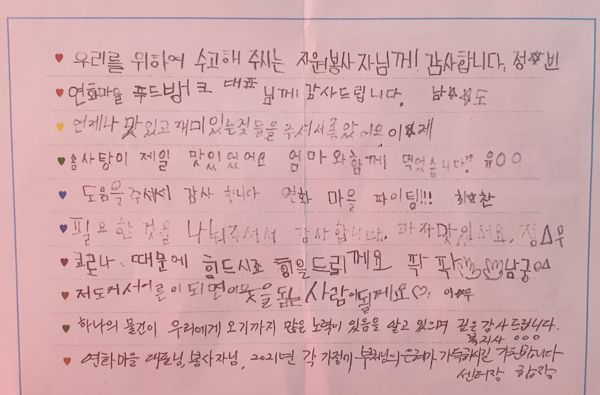 ♥ 우리를 위하여 수고해 주시는 자원봉사자님께! 감사합니다. 정☆빈
♥ 연화마을 푸드뱅크 대표님께 감사드립니다. 남☆☆도
♥ 언제나 맛있고 재미있는것들을 주셔서 좋았어요 이☆제
♥ 솜사탕이 제일 맛있었어요 엄마와 함께 먹었습니다!! 유○○
♥ 도움을 주셔서 감사합니다 연화 마을 파이팅!!! 최☆찬
♥ 필요한 것을 나눠주셔서 감사합니다. 과자맛있어요. 정△우
♥ 코로나 때문에 힘드시죠 힘을드릴게요 팍 팍 남궁○△
♥ 저도커서어른이되면이웃을돕는사람이될게요♡
♥ 하나의 물건이 우리에게 오기까지 많은 노력이 있음을 알고 있으며 깊은 감사드립니다.
복지사 ○○○
♥ 연화마을 대표님, 봉사자님, 2021년 각 가정에 부처님의 은혜가 가득하시길 기원합니다
센터장 합장